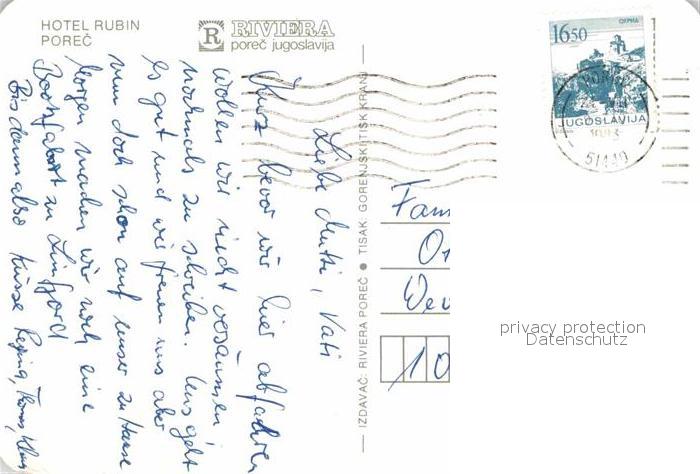 HOTEL RUBIN
POREČ
RIVIERA
poreč jugoslavija
Liebe Mutti, Vati
Kurz bevor wir hier abfahren
wollen wir nicht versäumen
nochmals zu schreiben. Uns geht
es gut und wir freuen uns aber
nun doch schon auf unser zu Hause
Morgen machen wir noch eine
Bootsfahrt zu Limfjord
Bis dann also Küsse Regina, Thomas, Klaus
IZDAVAČ: RIVIERA POREČ ● TISAK: GORENJSKI TISK KRANJ
16.50
ОХРИД
JUGOSLAVIJA
51440
Fam
Or
Wer
10
privacy protection
Datenschutz